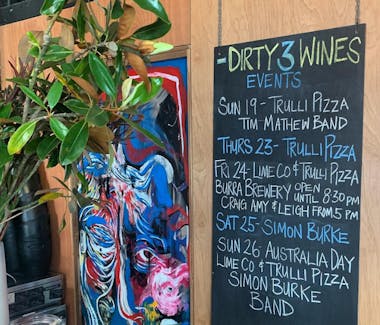 -DIRTY 3 WINES
EVENTS
SUN 19 - TRULLI PIZZA
TIM MATHEW BAND
THURS 23 - TRULLI PIZZA
FRI 24 - LIME CO & TRULLI PIZZA
BURRA BREWERY OPEN
UNTIL 8:30PM
CRAIG AMY & LEIGH FROM 5 PM
SAT 25 - SIMON BURKE
SUN 26 - AUSTRALIA DAY
LIME CO & TRULLI PIZZA
SIMON BURKE
BAND